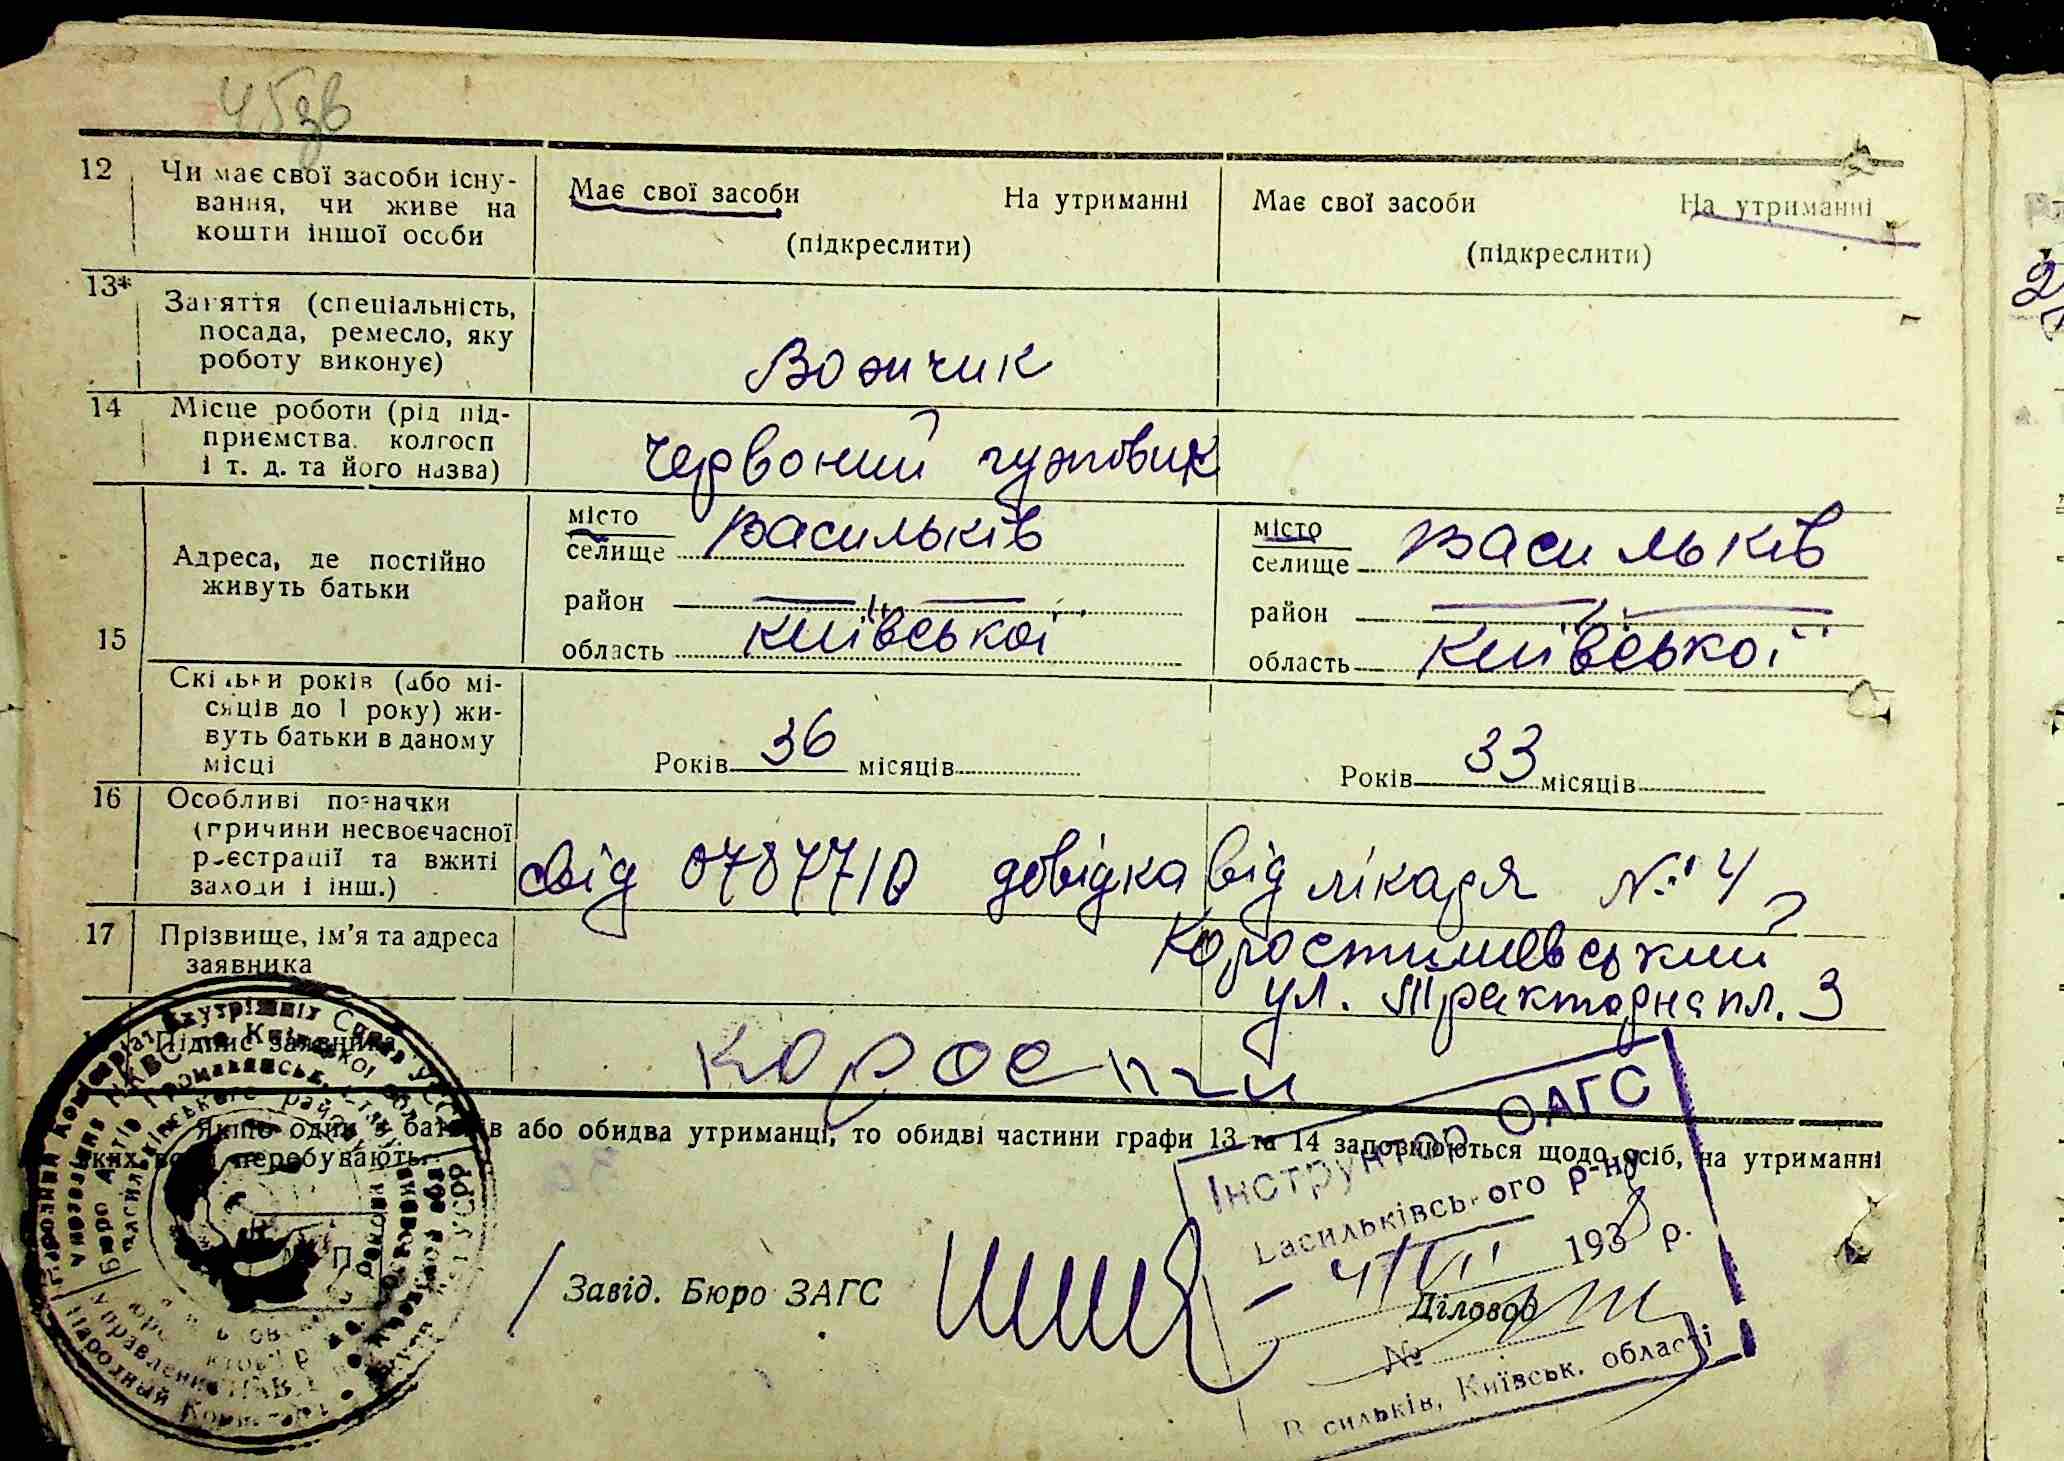 12 Чи має свої засоби існу-
вання, чи живе на
кошти іншої особи
Має свої засоби На утриманні
(підкреслити)
Має свої засоби На утриманні
(підкреслити)
13* Заняття (спеціальність,
посада, ремесло, яку
роботу виконує)
Возчик
14 Місце роботи (рід під-
приємства, колгосп
і т. д. та його назва)
Червоний гужовик
15
Адреса, де постійно
живуть батьки
місто
селище Васильків
район — „ —
область Київської
місто
селище Васильків
район — „ —
область Київської
Скільки років (або мі-
сяців до 1 року) жи-
вуть батьки в даному
місці
Років 36 місяців
Років 33 місяців
16 Особливі позначки
(причини несвоєчасної
реєстрації та вжиті
заходи і інш.)
свід 078771 довідка від лікаря № 4
17 Прізвище, ім’я та адреса
заявника
Коростишевський
ул. Тракторна пл. 3
Підпис заявника
Якщо один з батьків або обидва утриманці, то обидві частини графи 13 та 14 заповнюються щодо осіб, на утриманні
яких вони перебувають.
Завід. Бюро ЗАГС
Діловод
Інструктор ОАГС
Васильківського р-ну
1938 р.
№
Васильків, Київськ. області